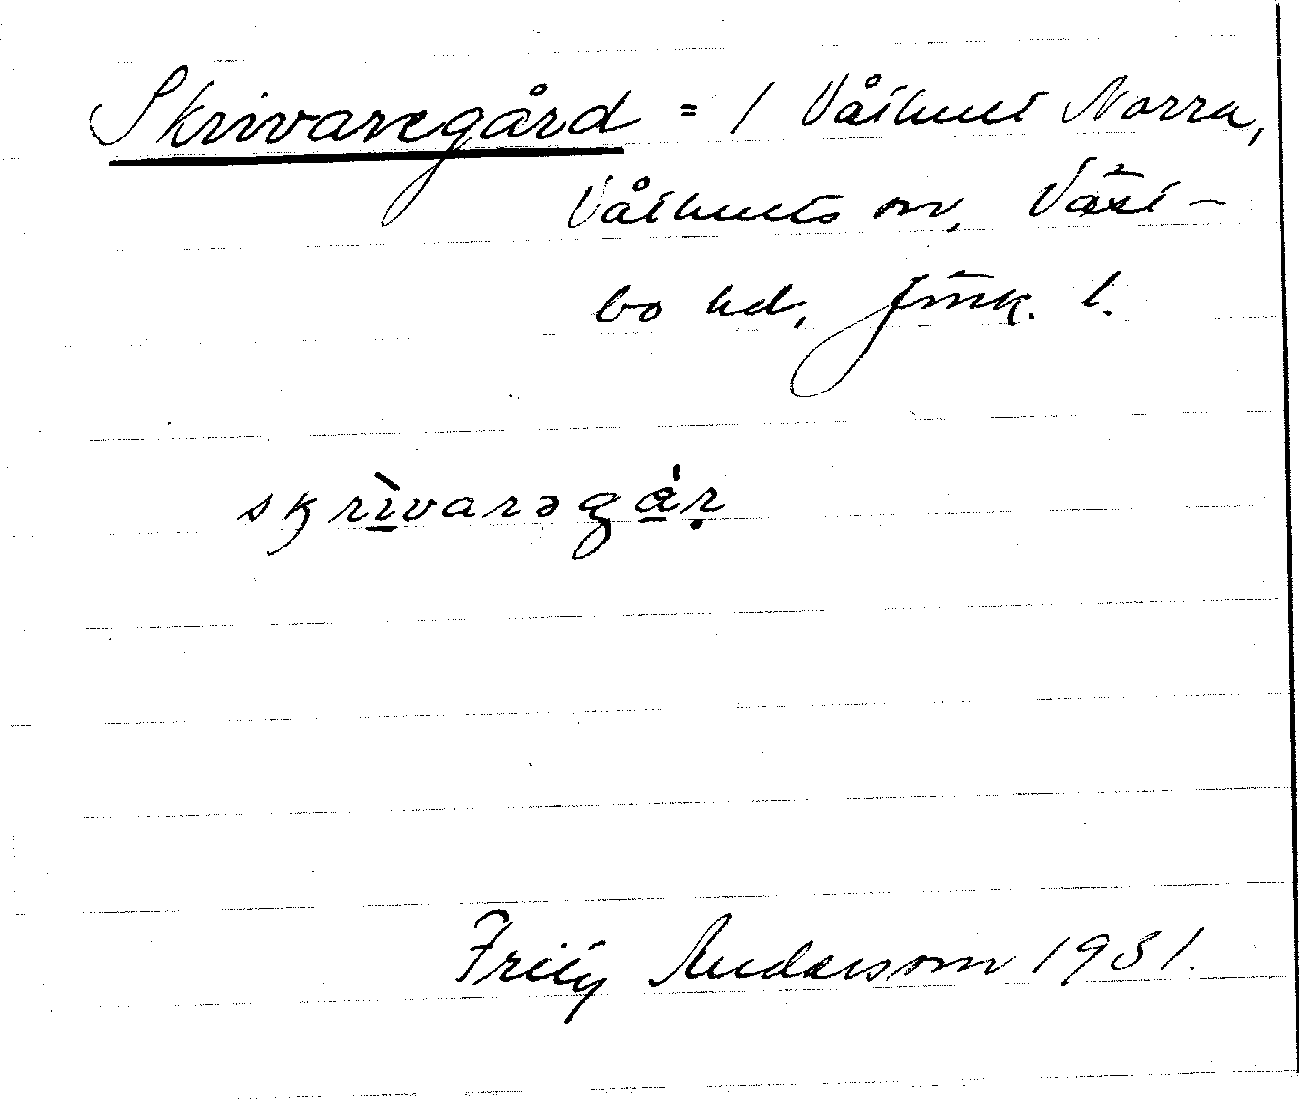 Skrivaregård = 1 Våthult Norra,
Våthults sn, Väst-
bo hd, Jönk. l.
skrìvarəgár
Fritz Andersson 1931.